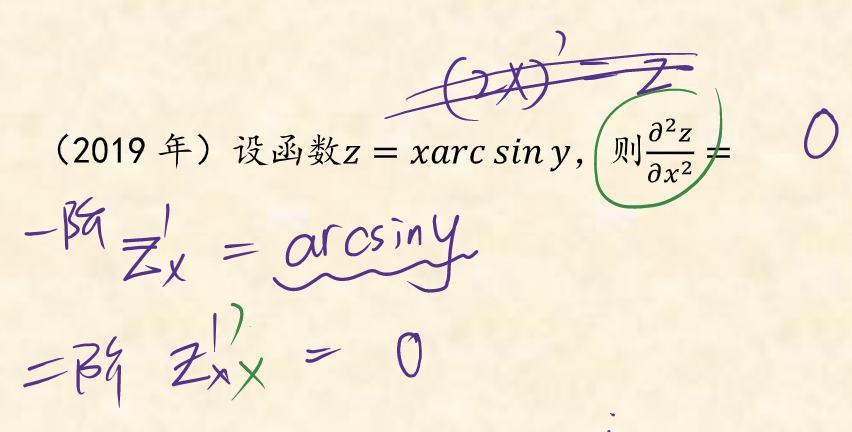 (2X)' = 2
(2019 年) 设函数z = xarc sin y, 则∂²z/∂x² = 0
一阶 Z'x = arcsiny
二阶 Z''xx = 0